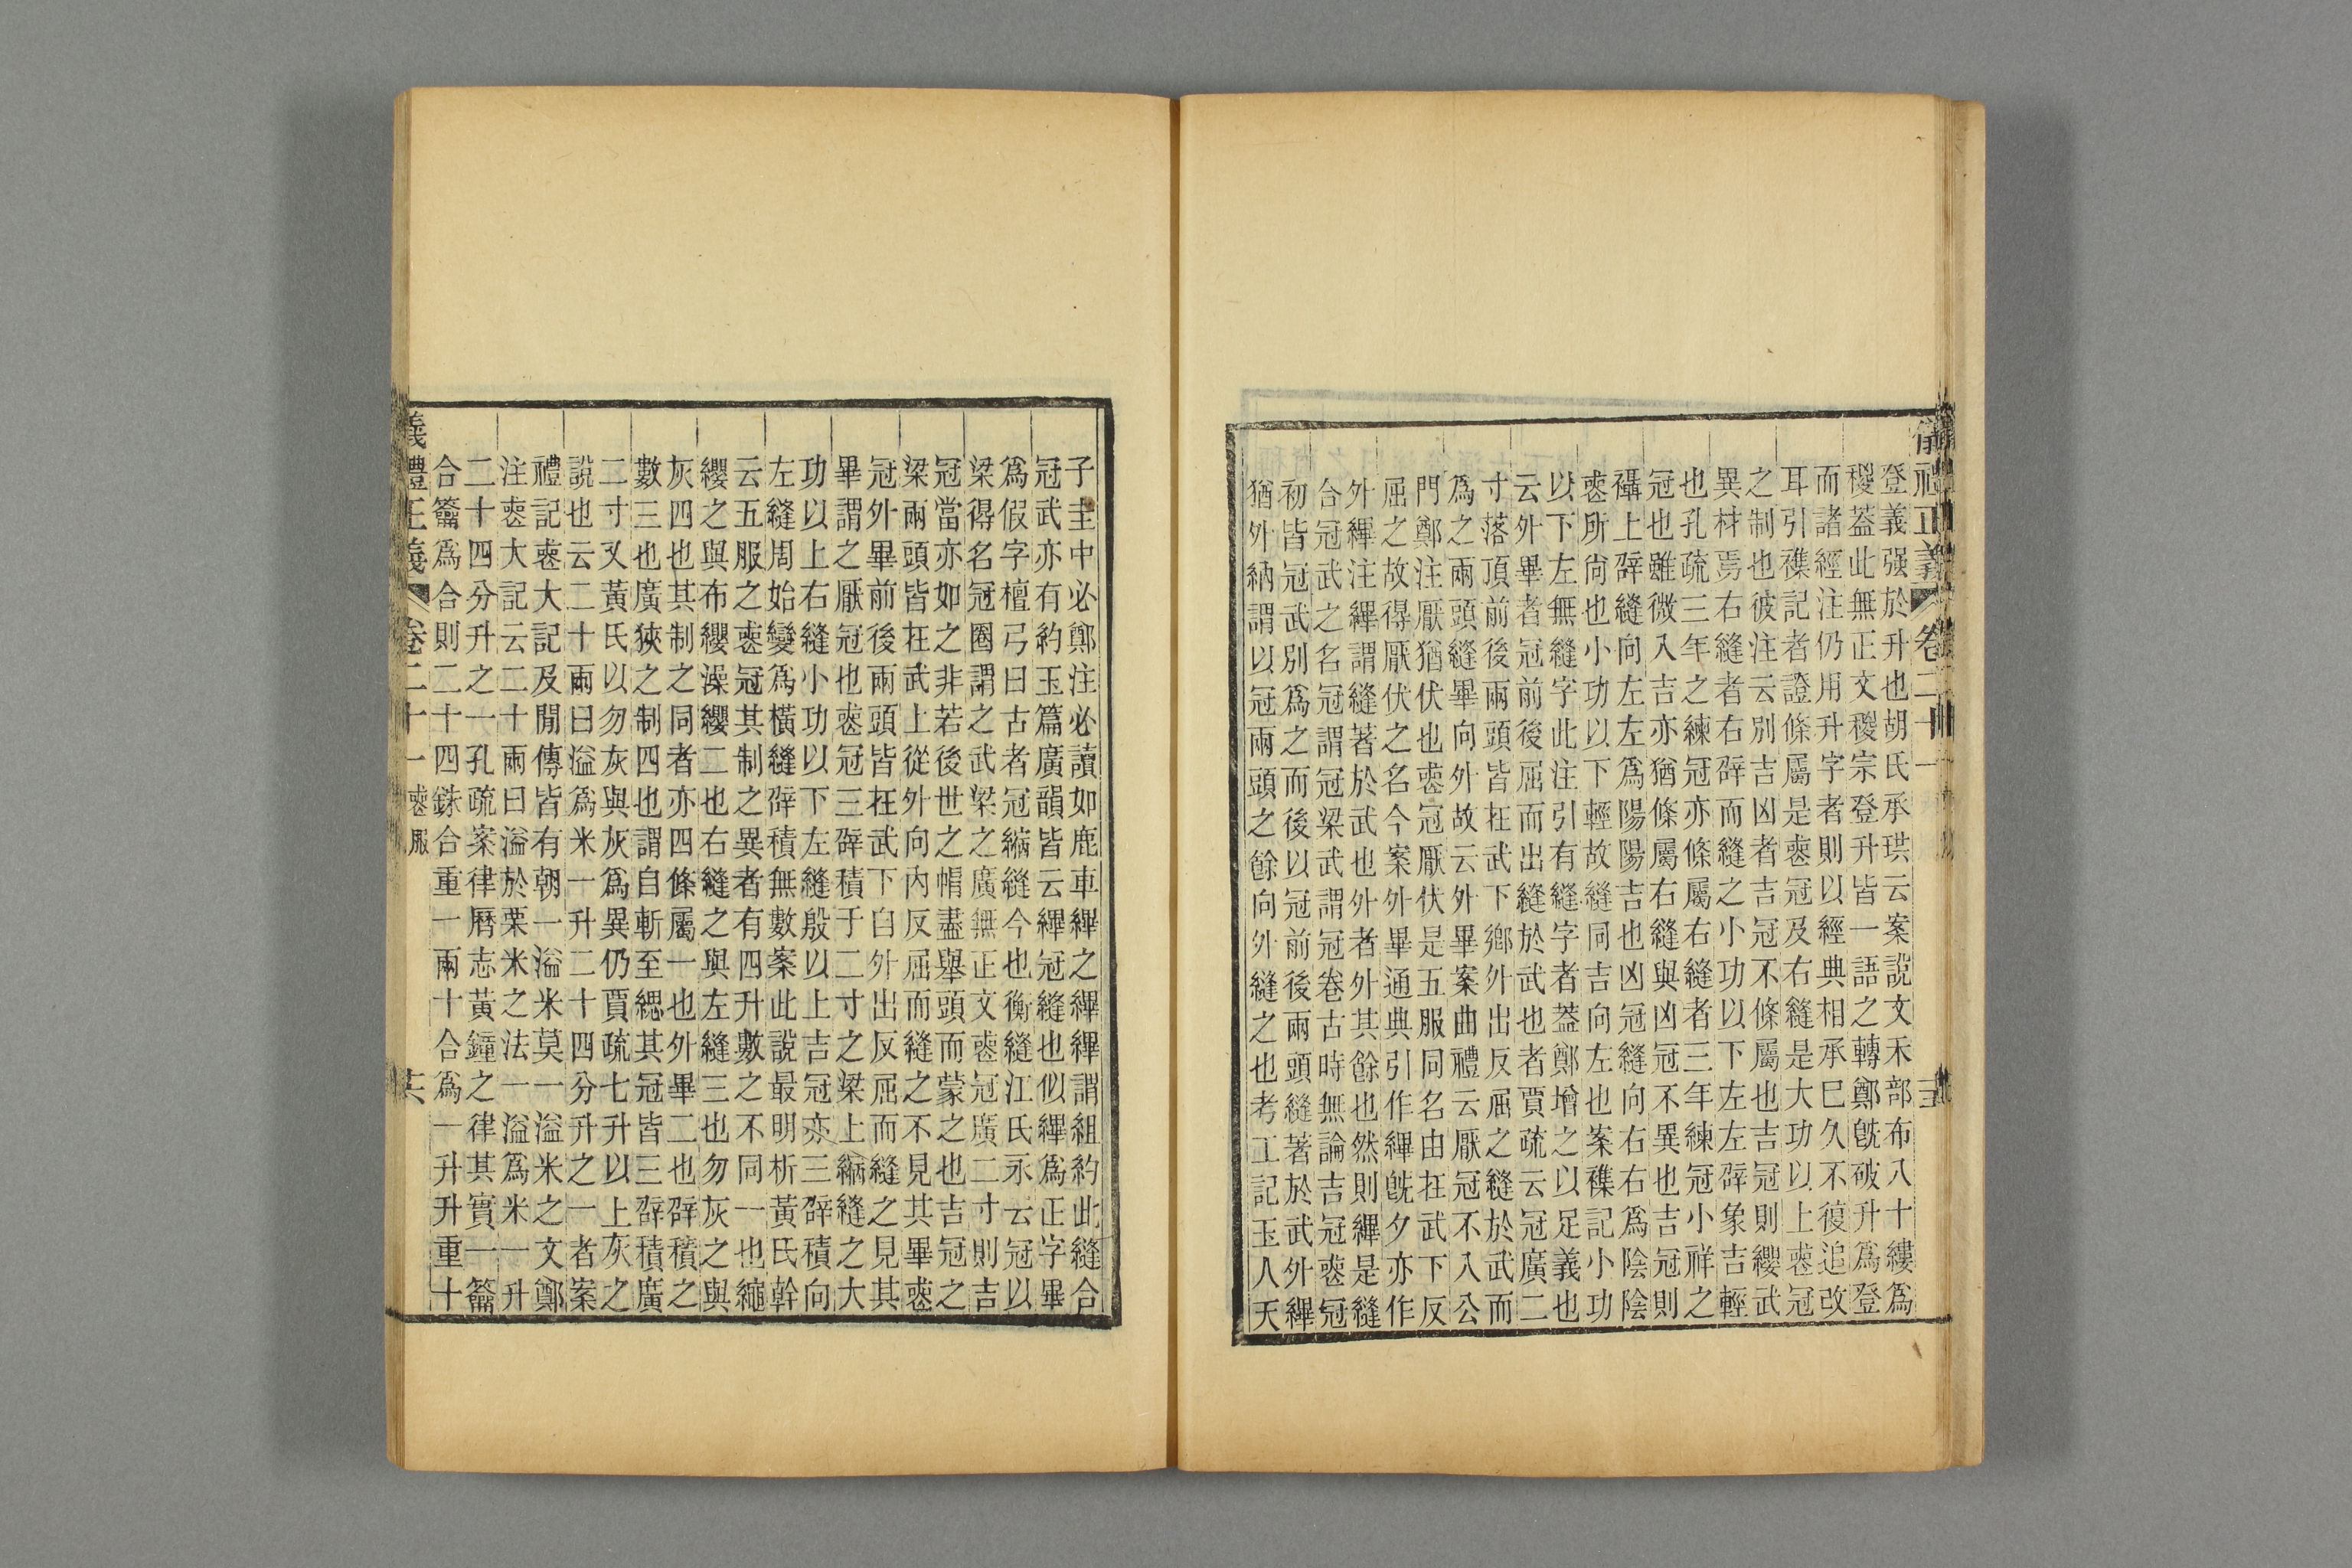 儀禮正義 卷二十一
登義强於升也胡氏承珙云案說文禾部布八十縷爲
稯葢此無正文稯宗登升皆一語之轉鄭旣破升爲登
而諸經注仍用升字者則以經典相承巳久不復追改
耳引襍記者證條屬是喪冠及右縫是大功以上喪冠
之制也彼注云別吉凶者吉冠不條屬也吉冠則纓武
異材焉右縫者右辟而縫之小功以下左左辟象吉輕
也孔疏三年之練冠亦條屬右縫者三年練冠小祥之
冠也雖微入吉亦猶條屬右縫與凶冠不異也吉冠則
襵上辟縫向左左爲陽陽吉也凶冠縫向右右爲陰陰
喪所尙也小功以下輕故縫同吉向左也案襍記小功
以下左無縫字此注引有縫字者葢鄭增之以足義也
云外畢者冠前後屈而出縫於武也者賈疏云冠廣二
寸落頂前後兩頭皆在武下鄉外出反屈之縫於武而
爲之兩頭縫畢向外故云外畢案曲禮云厭冠不入公
門鄭注厭猶伏也喪冠厭伏是五服同名由在武下反
屈之故得厭伏之名今案外畢通典引作縪旣夕亦作
外縪注縪謂縫著於武也外者外其餘也然則縪是縫
合冠武之名冠謂冠梁武謂冠卷古時無論吉冠喪冠
初皆冠武別爲之而後以冠前後兩頭縫著於武外縪
猶外納謂以冠兩頭之餘向外縫之也考工記玉人天
子圭中必鄭注必讀如鹿車縪之縪縪謂組約此縫合
冠武亦有約玉篇廣韻皆云縪冠縫也似縪爲正字畢
爲假字檀弓曰古者冠縮縫今也衡縫江氏永云冠以
梁得名冠圈謂之武梁之廣無正文喪冠廣二寸則吉
冠當亦如之非若後世之帽盡舉頭而蒙之也吉冠之
梁兩頭皆在武上從外向內反屈而縫之不見其畢喪
冠外畢前後兩頭皆在武下自外出反屈而縫之見其
畢謂之厭冠也喪冠三辟積于二寸之梁上縮縫之大
功以上右縫小功以下左縫殷以上吉冠亦三辟積向
左縫周始變爲橫縫辟積無數案此說最明析黃氏幹
云五服之喪冠其制之異者有四升數之不同一也繩
纓之與布纓澡纓二也右縫之與左縫三也勿灰之與
灰四也其制之同者亦四條屬一也外畢二也辟積之
數三也廣狹之制四也謂自斬至緦其冠皆三辟積廣
二寸又黃氏以勿灰與灰爲異仍賈疏七升以上灰之
說也云二十兩曰溢爲米一升二十四分升之一者案
禮記喪大記及閒傳皆有朝一溢米莫一溢米之文鄭
注喪大記云二十兩曰溢於栗米之法一溢爲米一升
二十四分升之一孔疏案律曆志黃鐘之律其實一籥
合籥爲合則二十四銖合重一兩十合爲一升升重十
禮正義 卷二十一 喪服